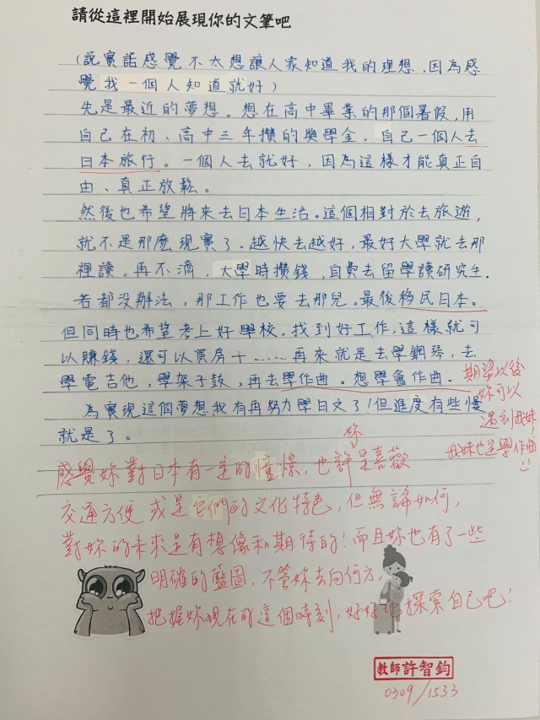 請從這裡開始展現你的文筆吧
(說實話感覺不太想讓人家知道我的理想,因為感
覺我一個人知道就好)
先是最近的夢想。想在高中畢業的那個暑假,用
自己在初、高中三年攢的獎學金,自己一個人去
日本旅行。一個人去就好,因為這樣才能真正自
由、真正放鬆。
然後也希望將來去日本生活。這個相對於去旅遊,
就不是那麼現實了。越快去越好,最好大學就去那
裡讀。再不濟,大學時攢錢,自費去留學讀研究生.
若都沒辦法,那工作也要去那兒。最後移民日本。
但同時也希望考上好學校,找到好工作,這樣就可
以賺錢,還可以買房子……再來就是去學鋼琴,去
學電吉他,學架子鼓,再去學作曲。想學會作曲。
為實現這個夢想我有再努力學日文了!但進度有些慢
就是了。
期望以後
妳可以
遇到我妹,
我妹也是學作曲
:)
感覺妳對日本有一定的憧憬,也許妳是喜歡
交通方便或是它們的文化特色,但無論如何,
對妳的未來是有想像和期待的!而且妳也有了一些
明確的藍圖,不管妳去向何方,
把握妳現在的這個時刻,好好地探索自己吧!
教師許智鈞
0309/1533